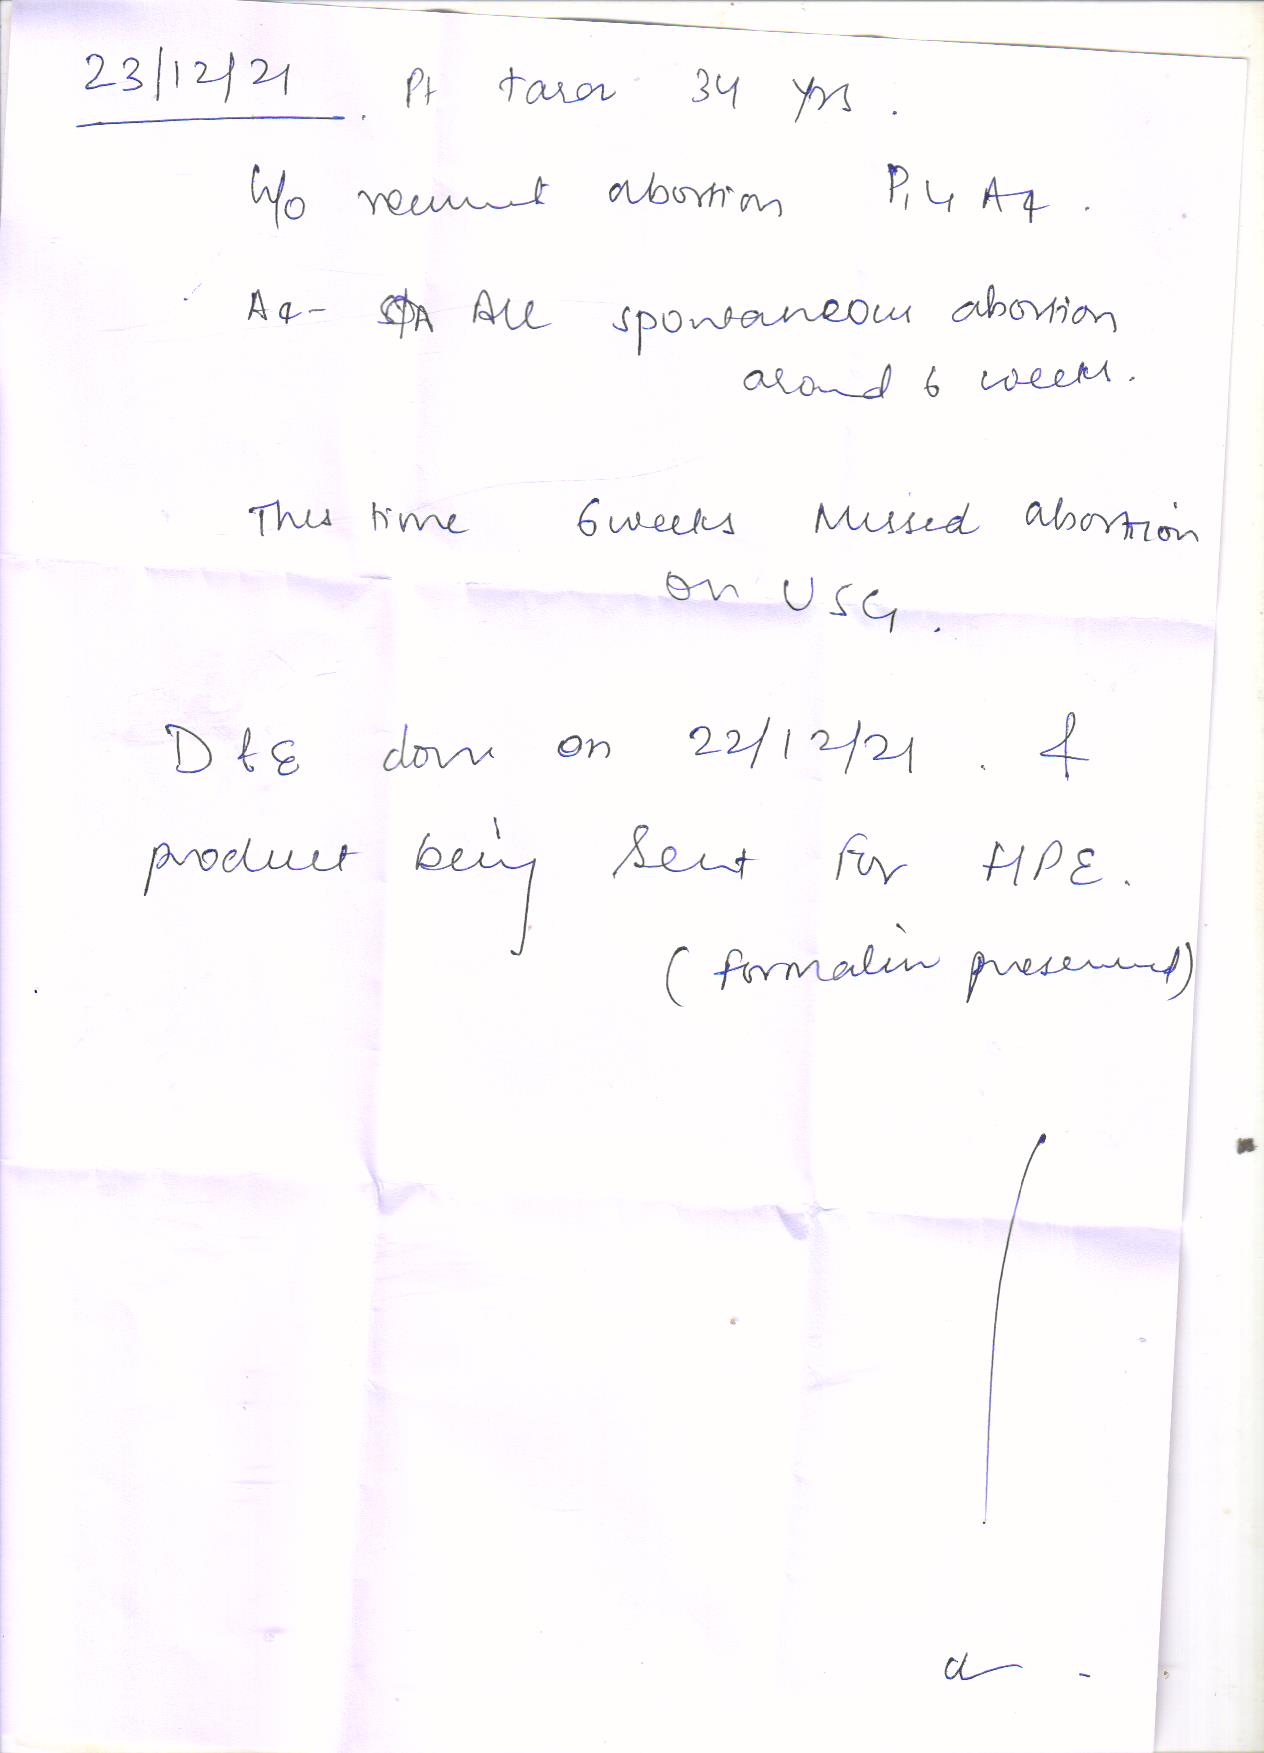 23/12/21. Pt tara 34 yrs.
H/o recurrent abortion P1L1 A4.
A4- All spontaneous abortion
around 6 weeks.
This time 6 weeks Missed abortion
on USG.
D & E done on 22/12/21. &
product being sent for HPE.
(formalin preserved)